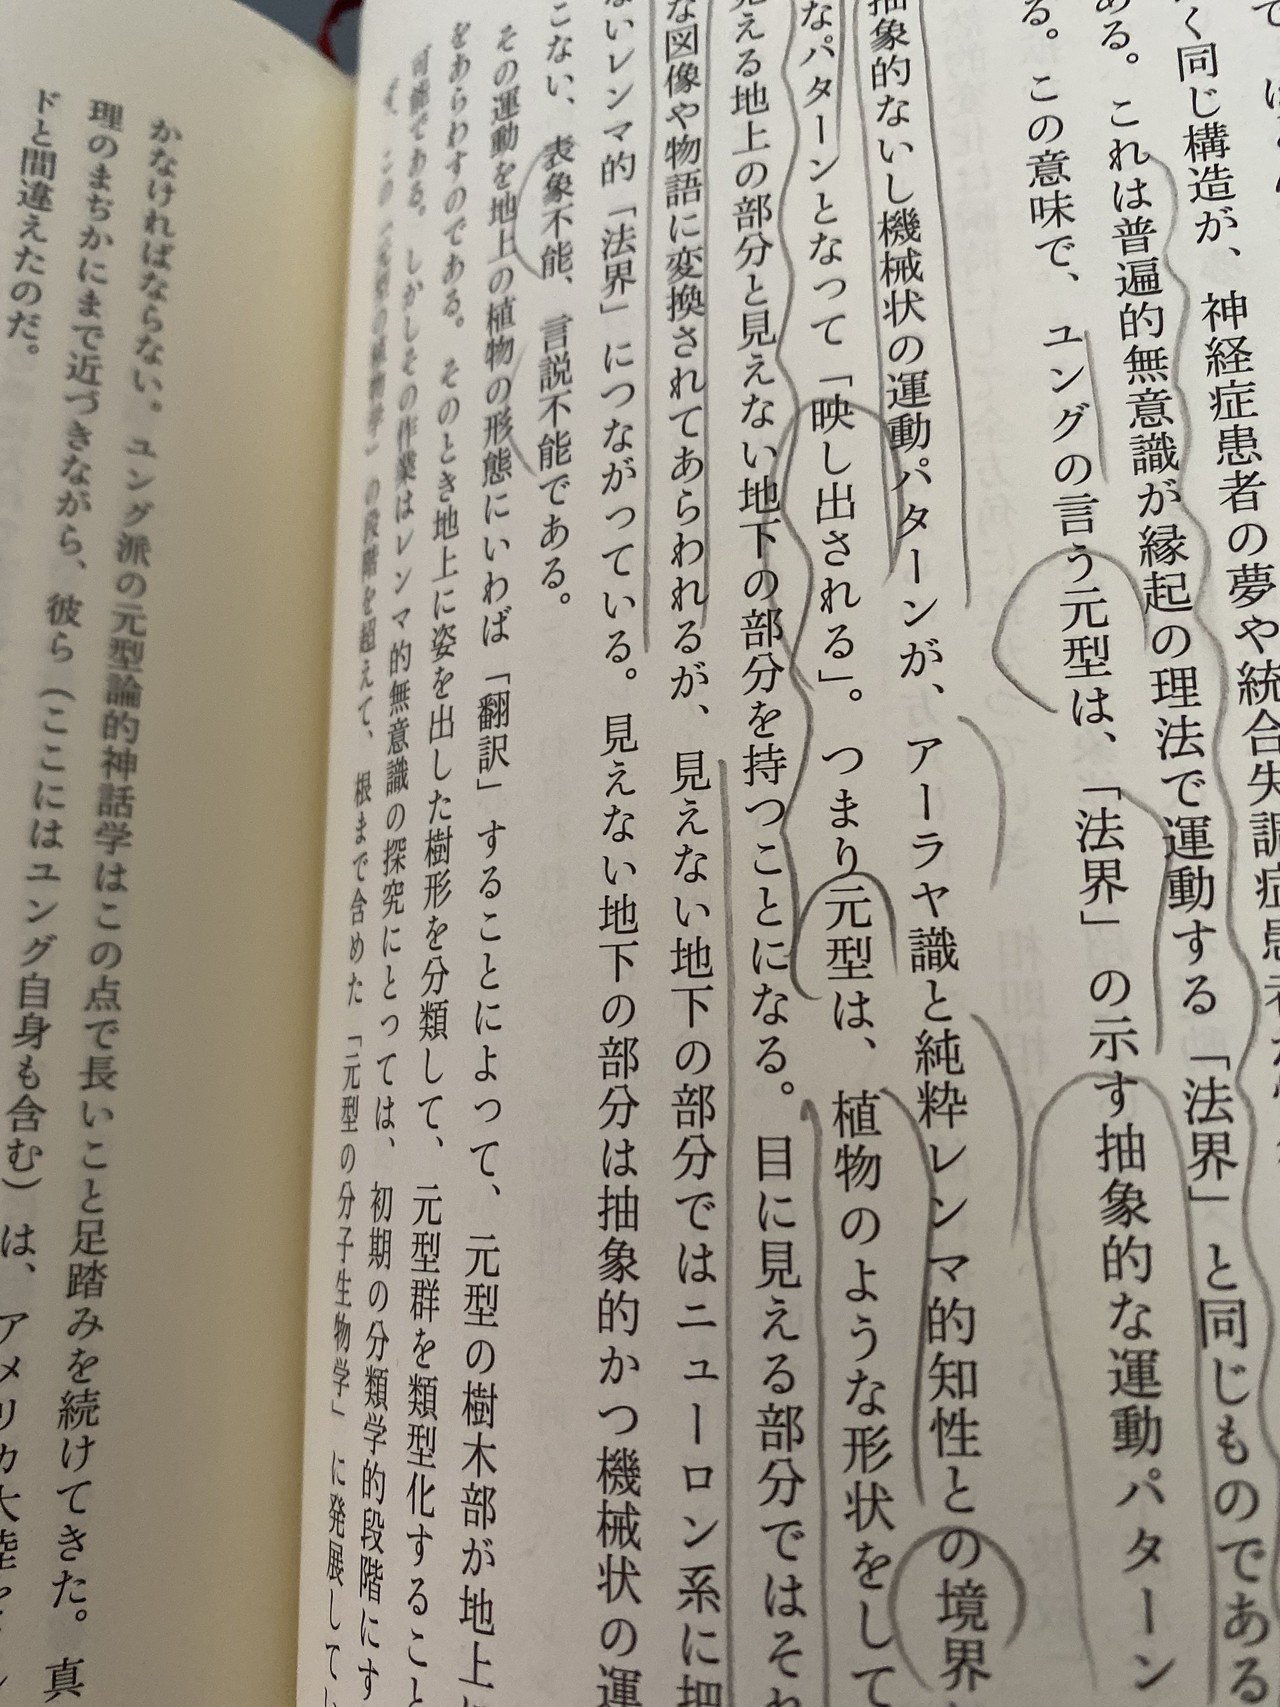 く同じ構造が、神経症患者の夢や統合失調症患者
ある。これは普遍的無意識が縁起の理法で運動する「法界」と同じものである
る。この意味で、ユングの言う元型は、「法界」の示す抽象的な運動パターン
抽象的ないし機械状の運動パターンが、アーラヤ識と純粋レンマ的知性との境界
なパターンとなって「映し出される」。つまり元型は、植物のような形状をして
見える地上の部分と見えない地下の部分を持つことになる。目に見える部分ではそれ
な図像や物語に変換されてあらわれるが、見えない地下の部分ではニューロン系に把
ないレンマ的「法界」につながっている。見えない地下の部分は抽象的かつ機械状の運
こない、表象不能、言説不能である。
その運動を地上の植物の形態にいわば「翻訳」することによって、元型の樹木部が地上に
をあらわすのである。そのとき地上に姿を出した樹形を分類して、元型群を類型化すること
可能である。しかしその作業はレンマ的無意識の探究にとっては、初期の分類学的段階にす
の段階を超えて、根まで含めた「元型の分子生物学」に発展してい
かなければならない。ユング派の元型論的神話学はこの点で長いこと足踏みを続けてきた。真
理のまぢかにまで近づきながら、彼ら（ここにはユング自身も含む）は、アメリカ大陸
ドと間違えたのだ。